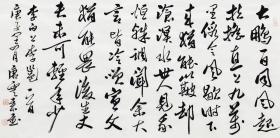 大鵬一日同風起
扶搖直上九萬
里假令風歇時下
來猶能簸却
滄溟水世人見我
恒殊調聞余大
言皆冷笑宣父
猶能畏後生丈
夫未可輕年少